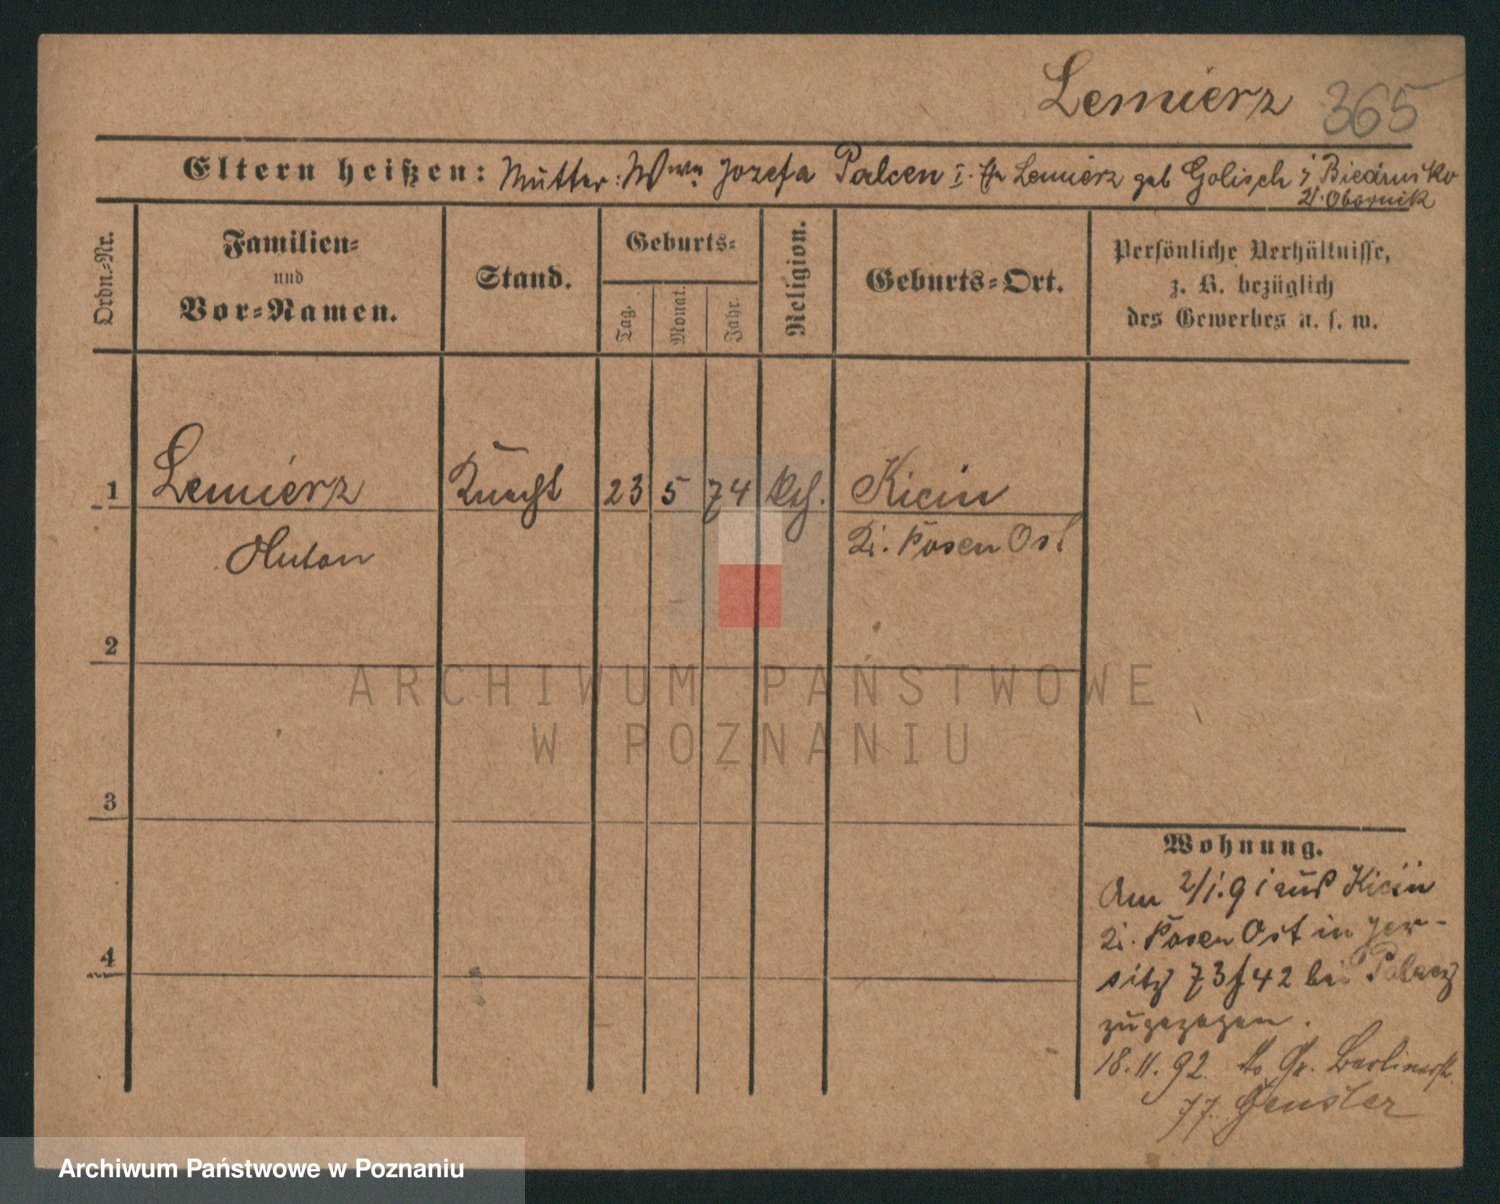 Lemierz 365
Eltern heißen: Mutter: Wwe Jozefa Palcen I. Lemierz geb Golisch Biedrusko
Obornik
Ordn.=Nr.
Familien=
und
Vor=Namen.
Stand.
Geburts=
Tag.
Monat.
Jahr.
Religion.
Geburts=Ort.
Persönliche Verhältnisse,
z. B. bezüglich
des Gewerbes u. s. w.
1 Lemierz Knecht 23 5 74 kth. Kicin
Anton Posen Ost
2
3
4
Wohnung.
Am 2/1.91 aus Kicin
Posen Ost in Jer-
sitz 73/42 bei Palacz
zugezogen.
18.11.92. Gr. Berlinerstr.
77. Gensler
ARCHIWUM PAŃSTWOWE
W POZNANIU
Archiwum Państwowe w Poznaniu